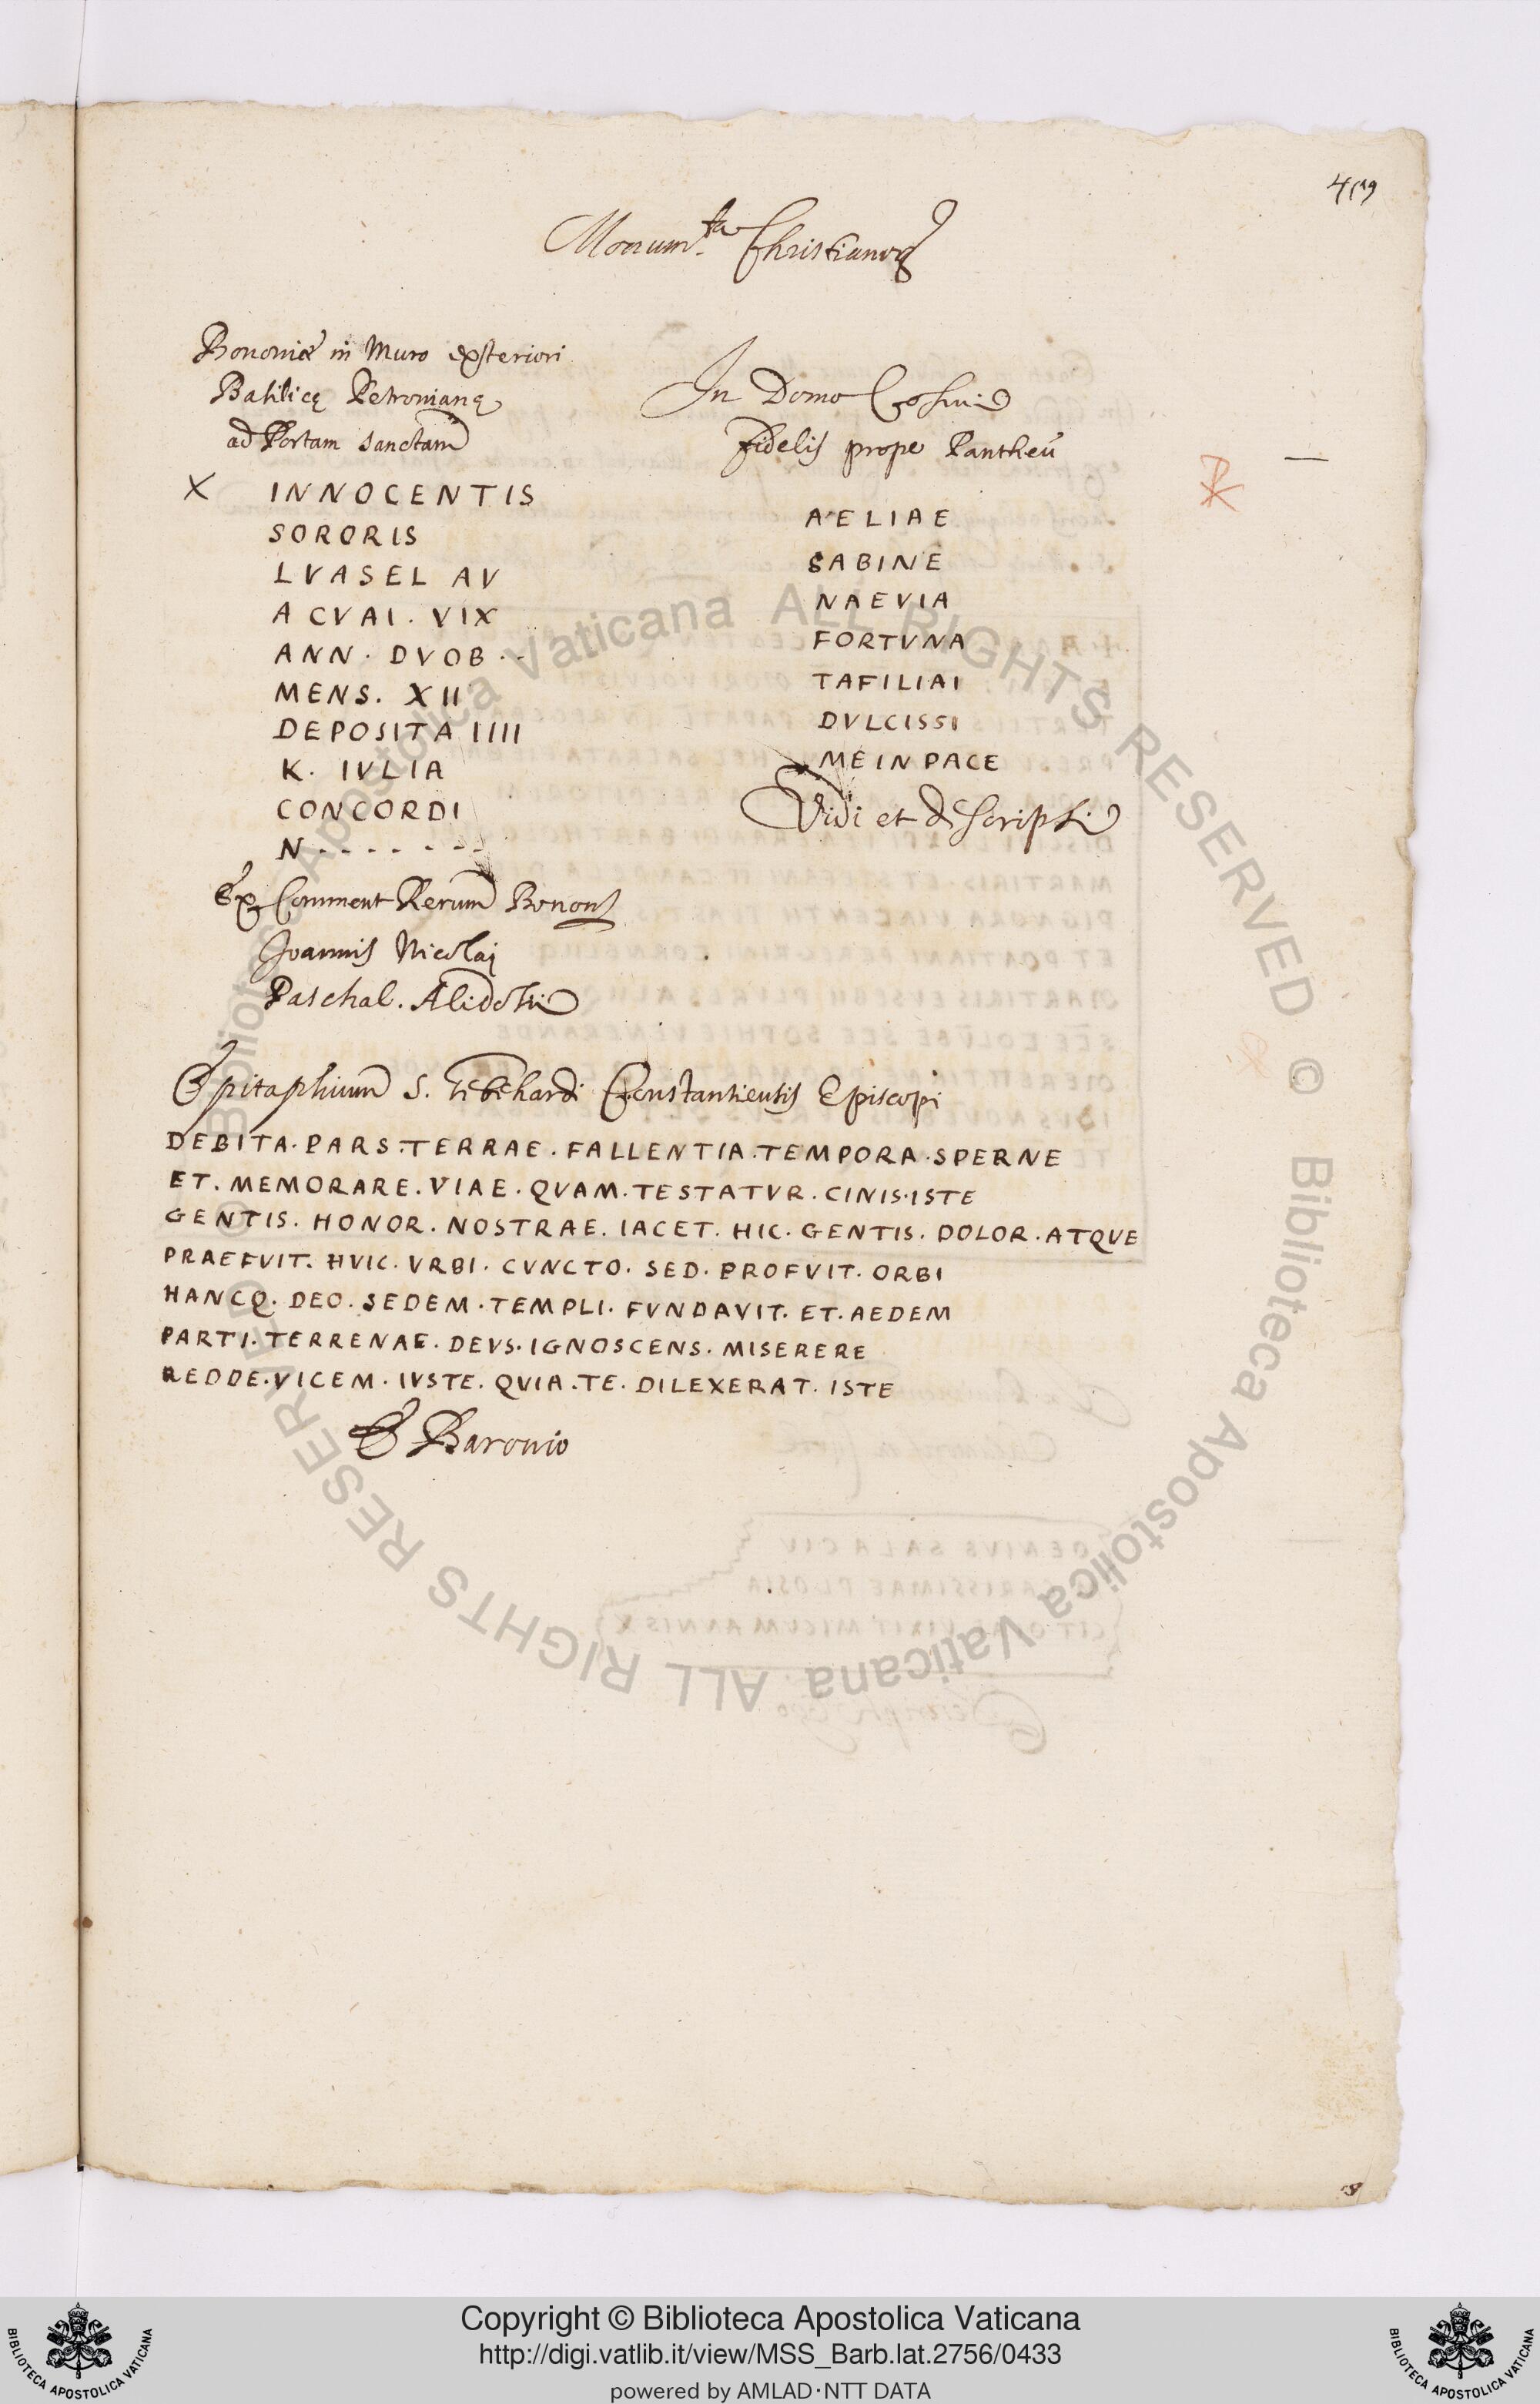 419
Monum.ta Christianorꝝ
Bononiæ in Muro exsteriori
Basilicę Petronianę
ad Portam sanctam
X INNOCENTIS
SORORIS
LVASEL AV
A CVAI. VIX
ANN. DVOB..
MENS. XII
DEPOSITA IIII
K. IVLIA
CONCORDI
N.------
Ex Comment Rerum Bonon
Joannis Nicolaj
Paschal. Alidosii
In Domo Cosmi
fidelis prope Pantheū
AELIAE
SABINE
NAEVIA
FORTVNA
TAFILIAI
DVLCISSI
MEINPACE
Vidi et descripsi
Epitaphium S. Gebehardi Constantiensis Episcopi
DEBITA.PARS.TERRAE.FALLENTIA.TEMPORA.SPERNE
ET.MEMORARE.VIAE.QVAM.TESTATVR.CINIS.ISTE
GENTIS.HONOR.NOSTRAE.IACET.HIC.GENTIS.DOLOR.ATQVE
PRAEFVIT.HVIC.VRBI.CVNCTO.SED.PROFVIT.ORBI
HANCQ.DEO.SEDEM.TEMPLI.FVNDAVIT.ET.AEDEM
PARTI.TERRENAE.DEVS.IGNOSCENS.MISERERE
REDDE.VICEM.IVSTE.QVIA.TE.DILEXERAT.ISTE
E Baronio
Biblioteca Apostolica Vaticana ALL RIGHTS RESERVED © Biblioteca Apostolica Vaticana ALL RIGHTS RESERVED ©
Copyright © Biblioteca Apostolica Vaticana
http://digi.vatlib.it/view/MSS_Barb.lat.2756/0433
powered by AMLAD·NTT DATA
BIBLIOTECA APOSTOLICA VATICANA
BIBLIOTECA APOSTOLICA VATICANA